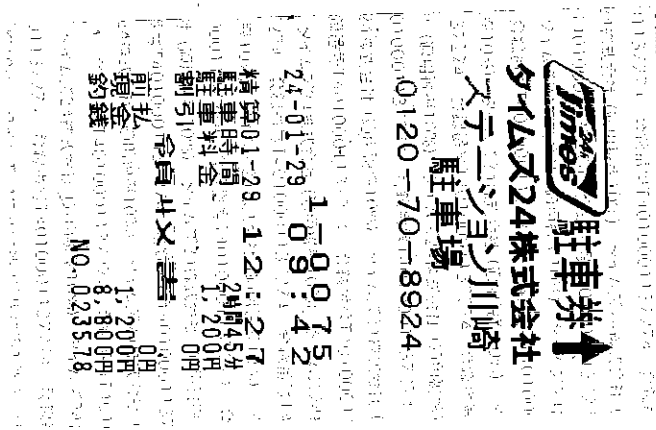 24h
Times
駐車券
タイムズ24株式会社
ステーション川崎
駐車場
0120-70-8924
1-0075
24-01-29 09:42
精算01-29 12:27
駐車時間 2時間45分
駐車料金 1,200円
割引 0円
領収書
前払 0円
現金 1,200円
釣銭 8,800円
NO.023578